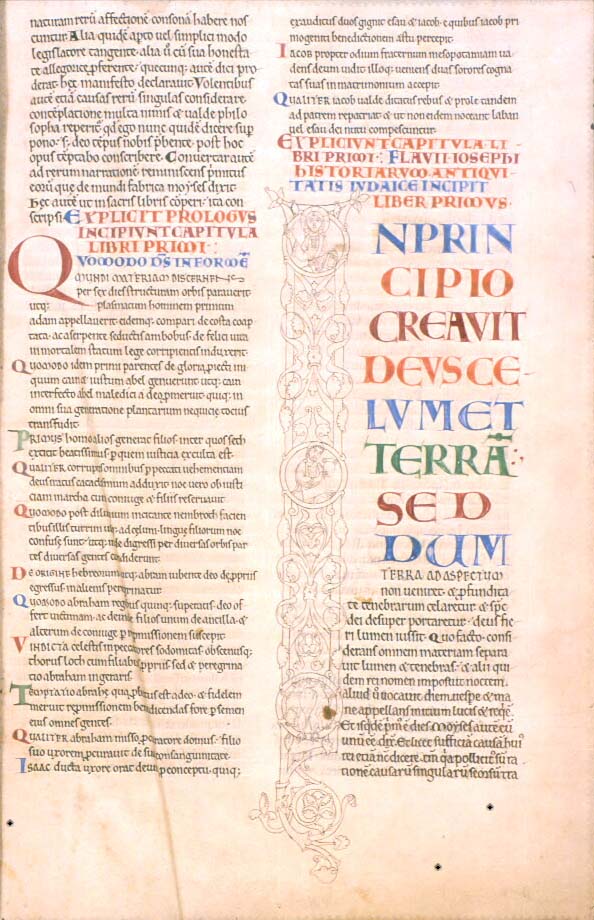 naturam rerū affectione consonā habere nos
cuntur. Alia quidē apto uel simplici modo
legislatore tangente. alia ů cū sua honesta
te allegorice pferente. quecunq; autē dici pro
derat. hęc manifesto declarauit. Volentibus
autē etiā causas rerū singulas considerare.
contēplatione multa nimis & ualde philo
sopha reperiet. qd ego nunc quidē dicere sup
pono. s; deo tēpus nobis pbente. post hoc
opus tēptabo conscribere. Conuertar autē
ad rerum narrationē. reminiscens prius
eorū que de mundi fabrica moyses dixit.
hęc autē ut in sacris libris cōperi. ita con
scripsi. EXPLICIT PROLOGVS
INCIPIVNT CAPITVLA
LIBRI PRIMI.
QVOMODO DS INFORMĒ
MVNDI MATERIAM DISCERNENS
per sex dies structuram orbis parauerit
utq; plasmatum hominem primum
adam appellauerit. eidemq; compari de costa coap
tata. ac a serpente seductis ambobus. de felici uita
in mortalem statum lege corripientis induxerit.
Quomodo idem primi parentes de gloria piecti ini
quum cain & iustum abel genuerint. utq; cain
interfecto abel maledici a deo pmeruit. quiq; in
omni sua generatione plantarium nequicie totius
transfudit.
Primus homo alios generat filios. inter quos seth
extitit beatissimus. p quem iusticia exculta est.
Qualiter corruptis omnibus p peccati uehementiam
deus natus cataclismum adduxit. noe uero ob iusti
ciam in archa cum coniuge & filiis reseruauit.
Quomodo post diluuium incitante nembroth facien
tibus illis turrim usq; ad celum. linguę filiorum noe
confusę sunt. utq; inde digressi per diuersas orbis par
tes diuersas gentes condiderunt.
De origine hebreorum. utq; abram iubente deo de ppriis
egressus. malienis peregrinatur.
Quomodo abraham regibus quinq; superatis deo of
fert uictimam. ac deinde filios unum de ancilla. &
alterum de coniuge p repromissionem suscepit.
Vindicta celestis impetatores sodomitas obsenus q;
thorus loth cum filiabus ppriis. sed & peregrina
tio abraham in geraris.
Temptatio abrahę qua pbatus est a deo. & fidelem
meruit repromissionem benedicendas fore p semen
eius omnes gentes.
Qualiter abraham misso pcuratore domus. filio
suo uxorem pcurauit de sui consanguinitate.
Isaac ducta uxore orat deum p conceptu. quiq;
exauditus duos gignit esau & iacob. e quibus iacob pri
mogeniti benedictionem astu percepit.
Iacob propter odium fraternum mesopotamiam ua
dens deum uidit. illoq; ueniens duas sorores cogna
tas suas in matrimonium accepit.
Qualiter iacob ualde ditatus rebus & prole. tandem
ad patrem repatriat. & ut non eidem noceant laban
uel esau dei nutu compescuntur.
EXPLICIVNT CAPITVLA LI
BRI PRIMI. FLAVII IOSEPHI
HISTORIARVM ANTIQVI
TATIS IVDAICE INCIPIT
LIBER PRIMVS.
NPRIN
CIPIO
CREAVIT
DEVS CE
LVM ET
TERRĀ.
SED
DVM
TERRA AD ASPECTVM
non ueniret. & pfundita
te tenebrarum celaretur. & sps
dei desuper portaretur. deus fie
ri lumen iussit. Quo facto. consi
derans omnem materiam separa
uit lumen & tenebras. & alii qui
dem rei nomen imposuit noctem.
aliud ů uocauit diem. uespe & ma
ne appellans initium lucis & requie.
Et isqdē pmꝰ ē dies. Moyses autē eū
unū eē dixit. Et licet sufficiā causā huiꝰ
rei etiā nc dicere. tm qa pollicitꝰ sū ra
tionē causarū singularū seorsū tra